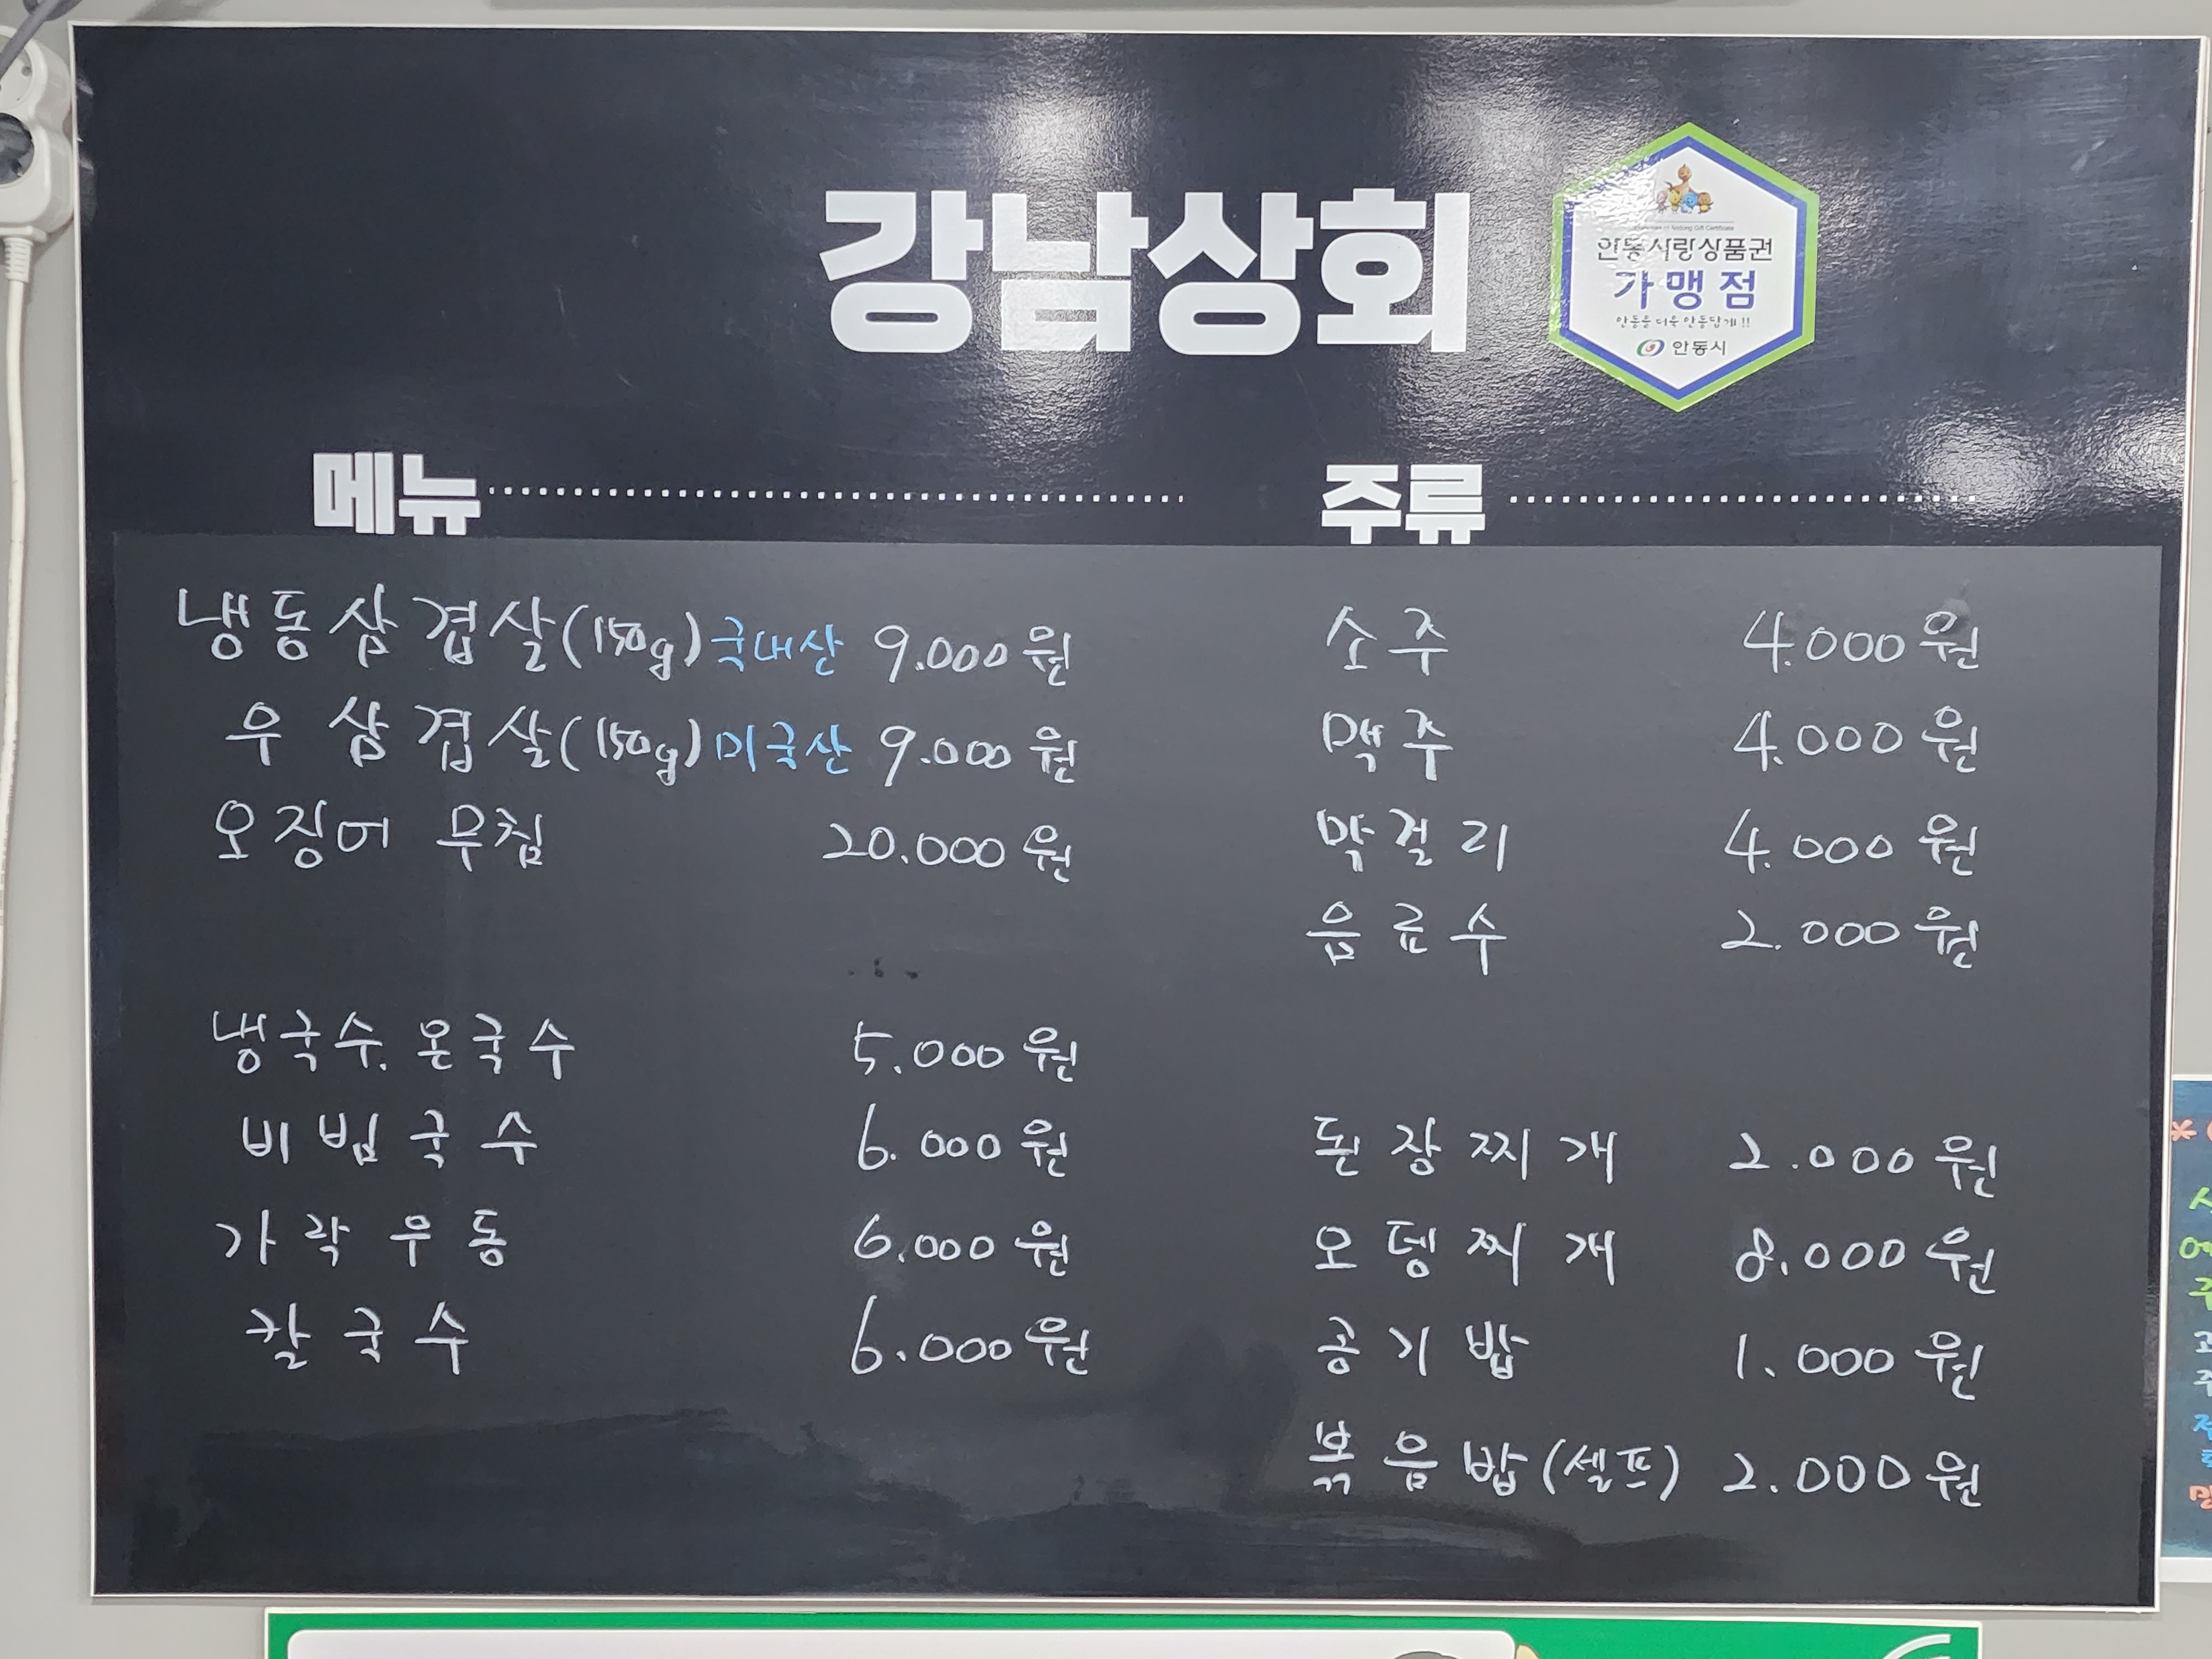 강남상회
안동사랑상품권
가맹점
안동을 더욱 안동답게!!
안동시
메뉴
냉동삼겹살(150g)국내산 9.000원
우삼겹살(150g)미국산 9.000원
오징어 무침 20.000원
냉국수. 온국수 5.000원
비빔국수 6.000원
가락우동 6.000원
칼국수 6.000원
주류
소주 4.000원
맥주 4.000원
막걸리 4.000원
음료수 2.000원
된장찌개 2.000원
오뎅찌개 8.000원
공기밥 1.000원
볶음밥(셀프) 2.000원